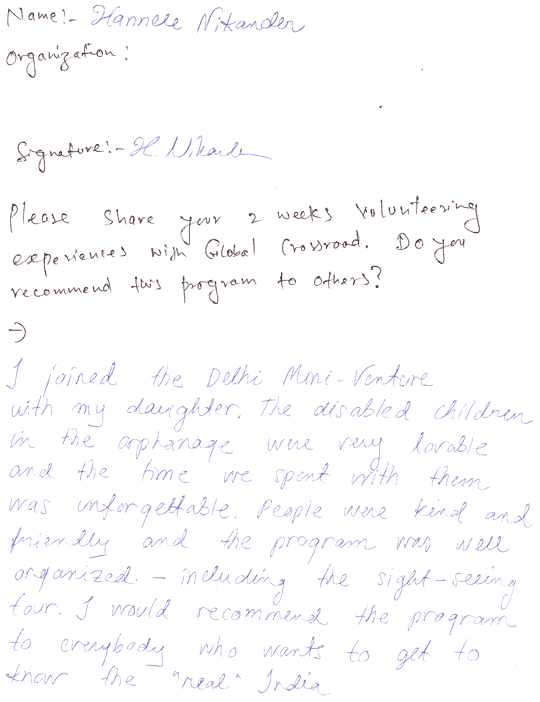 Name:- Hannele Nikander
Organization :
Signature:- H. Nikander
Please share your 2 weeks volunteering
experiences with Global Crossroad. Do you
recommend this program to others?
→
I joined the Delhi Mini-Venture
with my daughter. The disabled children
in the orphanage were very lovable
and the time we spent with them
was unforgettable. People were kind and
friendly and the program was well
organized. – including the sight-seeing
tour. I would recommend the program
to everybody who wants to get to
know the "real" India.